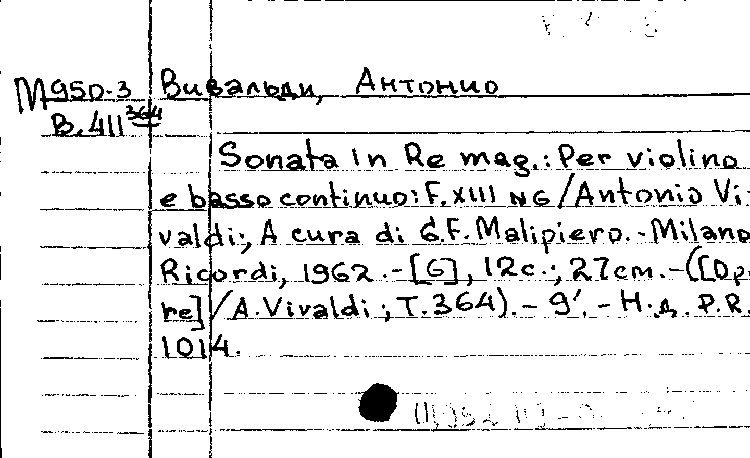 М950-3 Вивальди, Антонио
В.411 364
Sonata in Re mag.: Per violino
e basso continuo: F. XIII N6 / Antonio Vi-
valdi; A cura di G.F. Malipiero. - Milano
Ricordi, 1962. - [6], 12c.; 27cm. - ([Ope
re] / A. Vivaldi; T.364). - 9'. - Н.д. P.R.
1014.